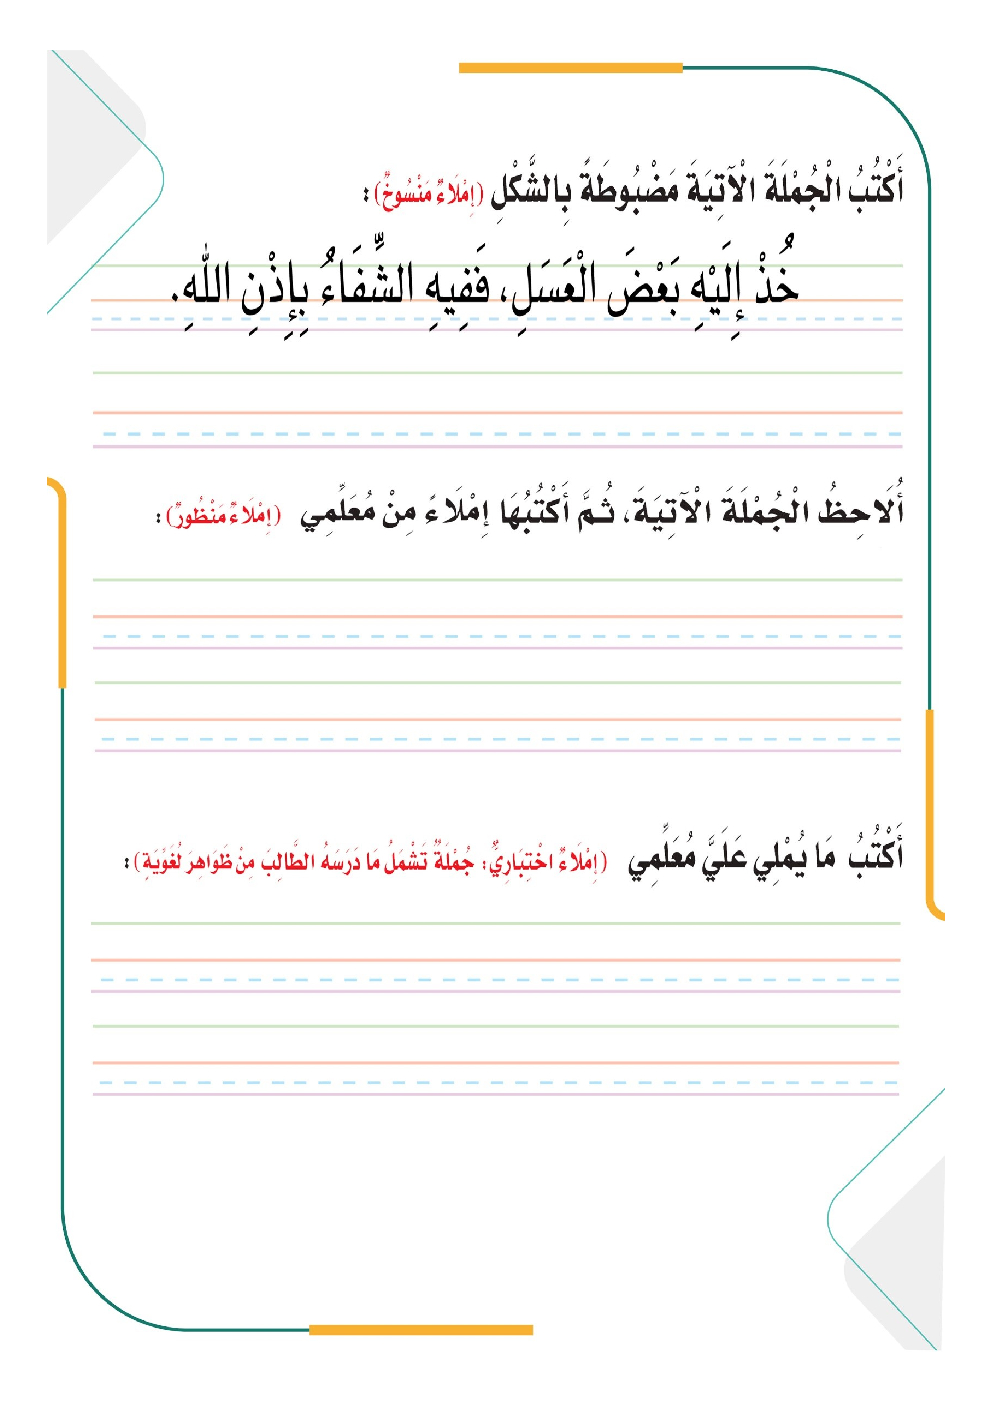 أَكْتُبُ الْجُمْلَةَ الْآتِيَةَ مَضْبُوطَةً بِالشَّكْلِ (إِمْلَاءٌ مَنْسُوخٌ) :
خُذْ إِلَيْهِ بَعْضَ الْعَسَلِ، فَفِيهِ الشِّفَاءُ بِإِذْنِ اللهِ.
أُلَاحِظُ الْجُمْلَةَ الْآتِيَةَ، ثُمَّ أَكْتُبُهَا إِمْلَاءً مِنْ مُعَلِّمِي (إِمْلَاءٌ مَنْظُورٌ) :
أَكْتُبُ مَا يُمْلِي عَلَيَّ مُعَلِّمِي (إِمْلَاءٌ اخْتِبَارِيٌّ: جُمْلَةٌ تَشْمَلُ مَا دَرَسَهُ الطَّالِبَ مِنْ ظَوَاهِرَ لُغَوُيَةٍ) :